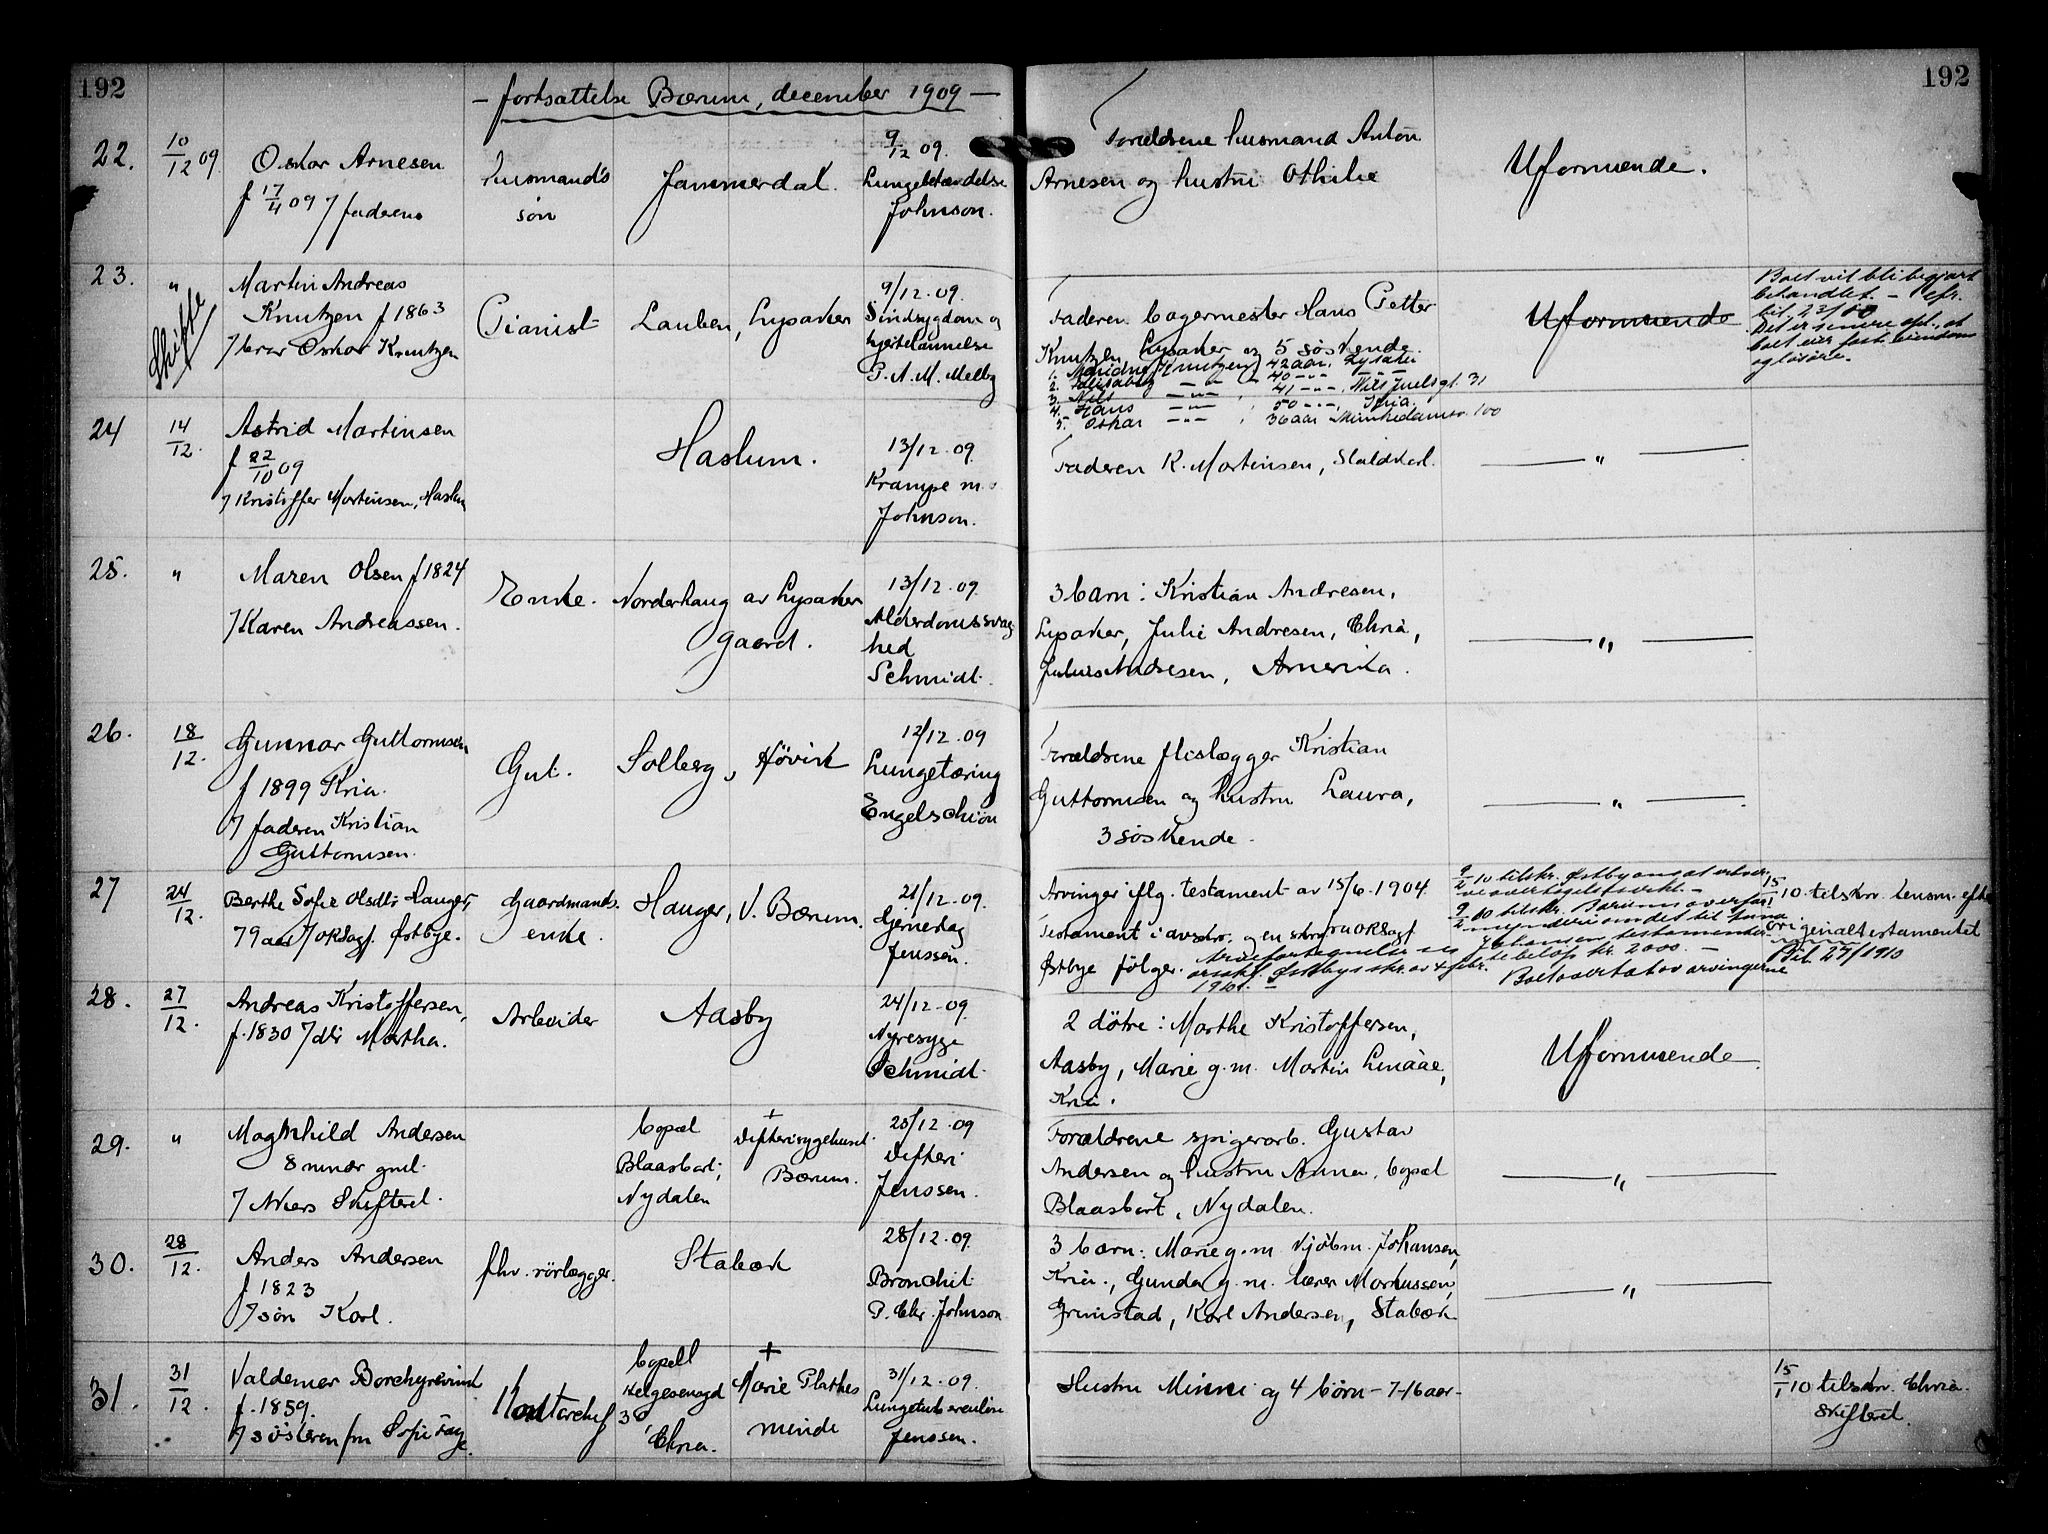 192
192
– fortsættelse Bærum, december 1909 –
22.
10/12 09
Oskar Arnesen
f 17/4 09 / faderen
husmands
søn
Jammerdal.
9/12 09.
Lungebetændelse
Johnson.
Forældrene husmand Anton
Arnesen og hustru Othilie
Uformuende.
23.
"
Skifte
Martin Andreas
Knutzen f 1863
/ bror Oskar Knutzen
Pianist
Lauben, Lysaker
9/12.09.
Sindsygdom og
hjertelammelse
P. A. M. Melby
Faderen bagermester Hans Petter
Knutzen, Lysaker og 5 søskende
1. Mandine Knutzen, 42 aar, Lysaker
2. Elisabeg — " — , 40 – " – — " —
3. Nils — " — , 41 – " –, Nils Juelsgt. 31
4. Hans — " — , 50 – " –, Kria.
5. Oskar — " — , 36 aar Munkedamsv. 100
Uformuende
Boet vil bli begjært
behandlet. – cfr.
Det er senere opl., at
boet eier fast eiendom
og løsøre.
24
14/12.
Astrid Martinsen
f 22/10 09
/ Kristoffer Martinsen, Haslum
Haslum.
13/12.09.
Krampe m.
Johnson.
Faderen K. Martinsen, Staldkarl.
— " —
25.
"
Maren Olsen f 1824
/ Karen Andreassen.
Enke.
Norderhaug av Lysaker
gaard.
13/12.09.
Alderdomssvag-
hed
Schmidt.
3 barn: Kristian Andresen,
Lysaker, Julie Andresen, Chria,
Julius Andresen, Amerika.
— " —
26.
18/12.
Gunnar Guttormsen
f 1899 Kria.
/ faderen Kristian
Guttormsen.
Gut.
Solberg, Høvik
12/12.09
Lungetæring
Engelschiøn
Forældrene fliselægger Kristian
Guttormsen og hustru Laura,
3 søskende.
— " —
27
24/12.
Berthe Sofie Olsdtr Hauger,
79 aar / oksagf. Østbye.
Gaardmands-
enke.
Hauger, V. Bærum.
21/12.09.
Hjerneslag
Jenssen.
Arvinger iflg. testament av 15/6.1904.
Testament i avskr. og en skr. fra orsagf
Østbye følger.
Boet overtat av arvingerne
15/1 10 tilskrv. lensm. efter
originaltestamentet
28.
27/12.
Andreas Kristoffersen,
f. 1830 / dtr Martha.
Arbeider
Aasby
24/12.09.
Nyresyge
Schmidt.
2 døtre: Marthe Kristoffersen,
Aasby, Marie g.m. Martin Linaae,
Kria.
Uformuende
29.
"
Maghhild Andersen
8 mndr gml.
/ Akers Skifteret.
bopæl
Blaasbort,
Nydalen
+
Difterisygehuset.
Bærum.
25/12.09
Difteri
Jenssen.
Forældrene spigerarb. Gustav
Andersen og hustru Anna, bopæl
Blaasbort, Nydalen.
— " —
30.
28/12.
Anders Andersen
f 1823
/ søn Karl.
fhv. rørlægger.
Stabæk
28/12.09.
Bronchit
P. Chr. Johnson
3 barn: Marie g.m. kjøbm. Johansen,
Kria., Gunda g.m. lærer Markussen,
Grimstad, Karl Andersen, Stabæk
— " —
31.
31/12.
Valdemar Borchgrevink
f. 1859.
/ søsteren fru Sofie Faye.
Kontorchef
bopæll
Helgesensgd
30
Chria.
+
Marie Plathes
minde
31/12.09.
Lungetuberculose
Jenssen.
Hustru Minni og 4 børn – 7-16 aar –
15/1 10 tilskrv. Chria.
Skifteret.